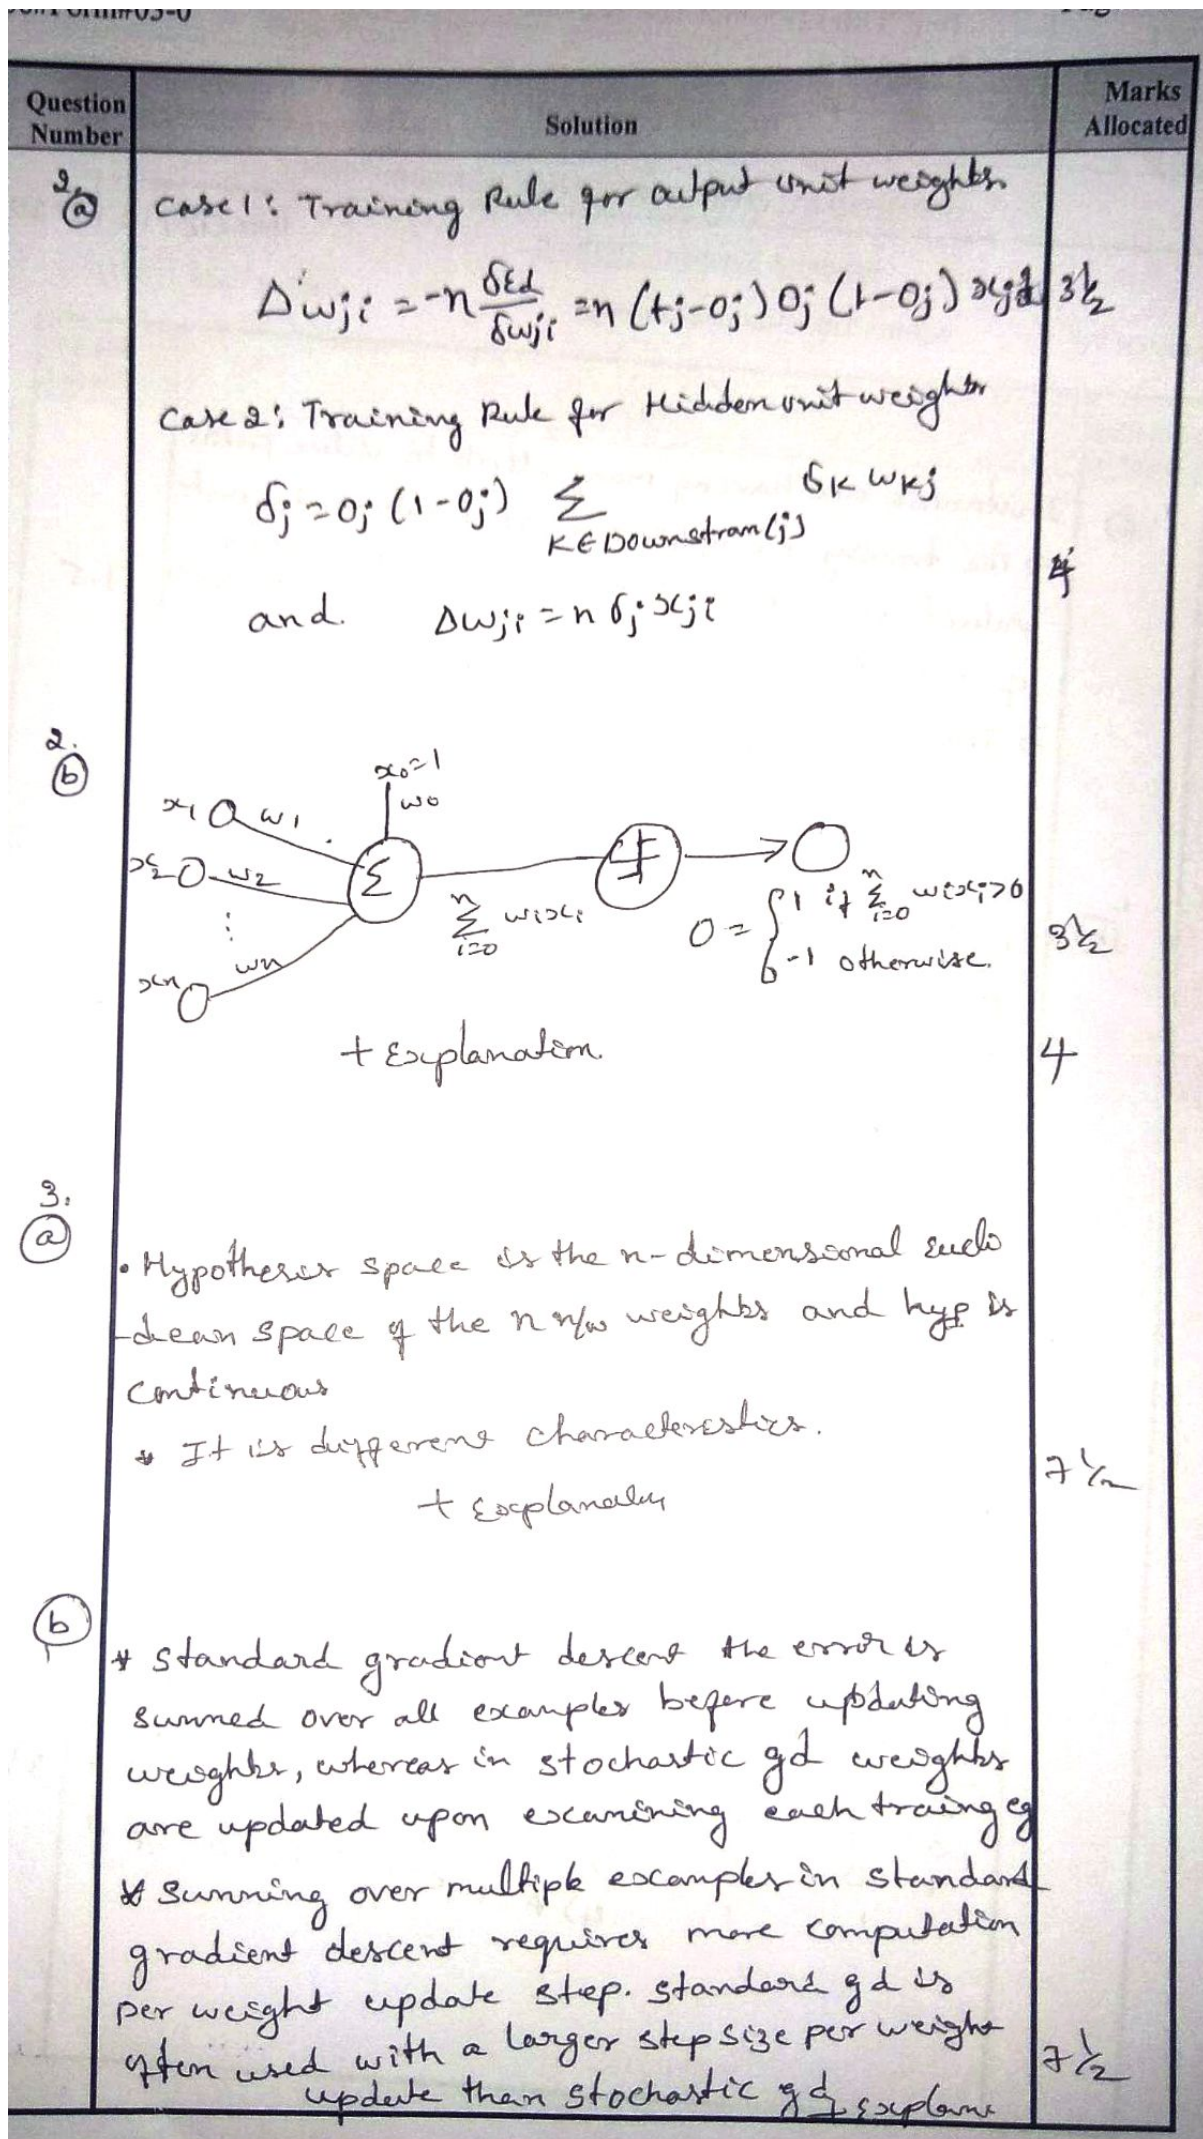 Question Number
Solution
Marks Allocated
2. a
Case 1: Training Rule for output unit weights
Δwji = -η δEd/δwji = η (tj-oj) oj (1-oj) xji
3½
Case 2: Training Rule for Hidden unit weights
δj = oj (1-oj) Σ K∈Downstram(j) δK wKj
4
and. Δwji = η δj xji
2. b
x0=1
w0
x1 w1
x2 w2
Σ
⋮
xn wn
n Σ i=0 wixi
O = { 1 if n Σ i=0 wixi>0
-1 otherwise.
3½
+ Explanation.
4
3. a
• Hypothesis space is the n-dimensional eucli
-dean space of the n n/w weights and hyp is
continuous
* It is different characteristics.
7½
+ Explanation
b
* Standard gradient descent the error is
summed over all examples before updating
weights, whereas in stochastic gd weights
are updated upon examining each traing eg
* Summing over multiple examples in standard
gradient descent requires more computation
per weight update step. standard gd is
often used with a larger step size per weight
7½
update than stochastic gd